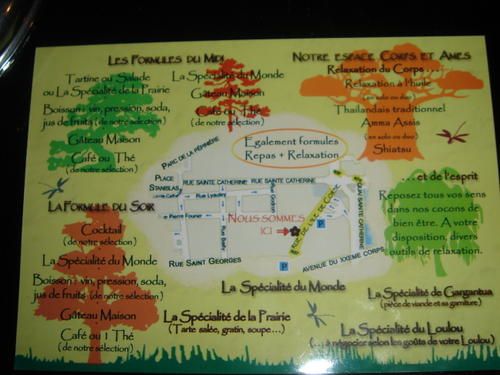 Les Formules du Midi
Tartine ou Salade
ou La Spécialité de la Prairie
Boisson: vin, pression, soda,
jus de fruits (de notre sélection)
Gâteau Maison
Café ou Thé
(de notre sélection)
La Spécialité du Monde
Gâteau Maison
Café ou Thé
(de notre sélection)
Notre espace Corps et Ames
Relaxation du Corps....
Relaxation à l'huile
(en solo ou duo)
Thaïlandais traditionnel
Amma Assis
(en solo ou duo)
Shiatsu
...et de l'esprit
Reposez tous vos sens
dans nos cocons de
bien être. A votre
disposition, divers
outils de relaxation.
Egalement formules
Repas + Relaxation
Parc de la Pépinière
Place
Stanislas
Rue Sainte Catherine
Rue Sainte Catherine
Rue Lyautey
Rue Godron
Rue Pierre Fourier
Rue Bailly
Rue Sainte Catherine
Nous sommes
ici
P
P
Rue Saint Georges
Avenue du XXeme Corps
La Formule du Soir
Cocktail
(de notre sélection)
La Spécialité du Monde
Boisson: vin, pression, soda,
jus de fruits (de notre sélection)
Gâteau Maison
Café ou 1 Thé
(de notre sélection)
La Spécialité du Monde
La Spécialité de la Prairie
(Tarte salée, gratin, soupe...)
La Spécialité de Gargantua
(pièce de viande et sa garniture)
La Spécialité du Loulou
(... à négocier selon les goûts de votre Loulou)